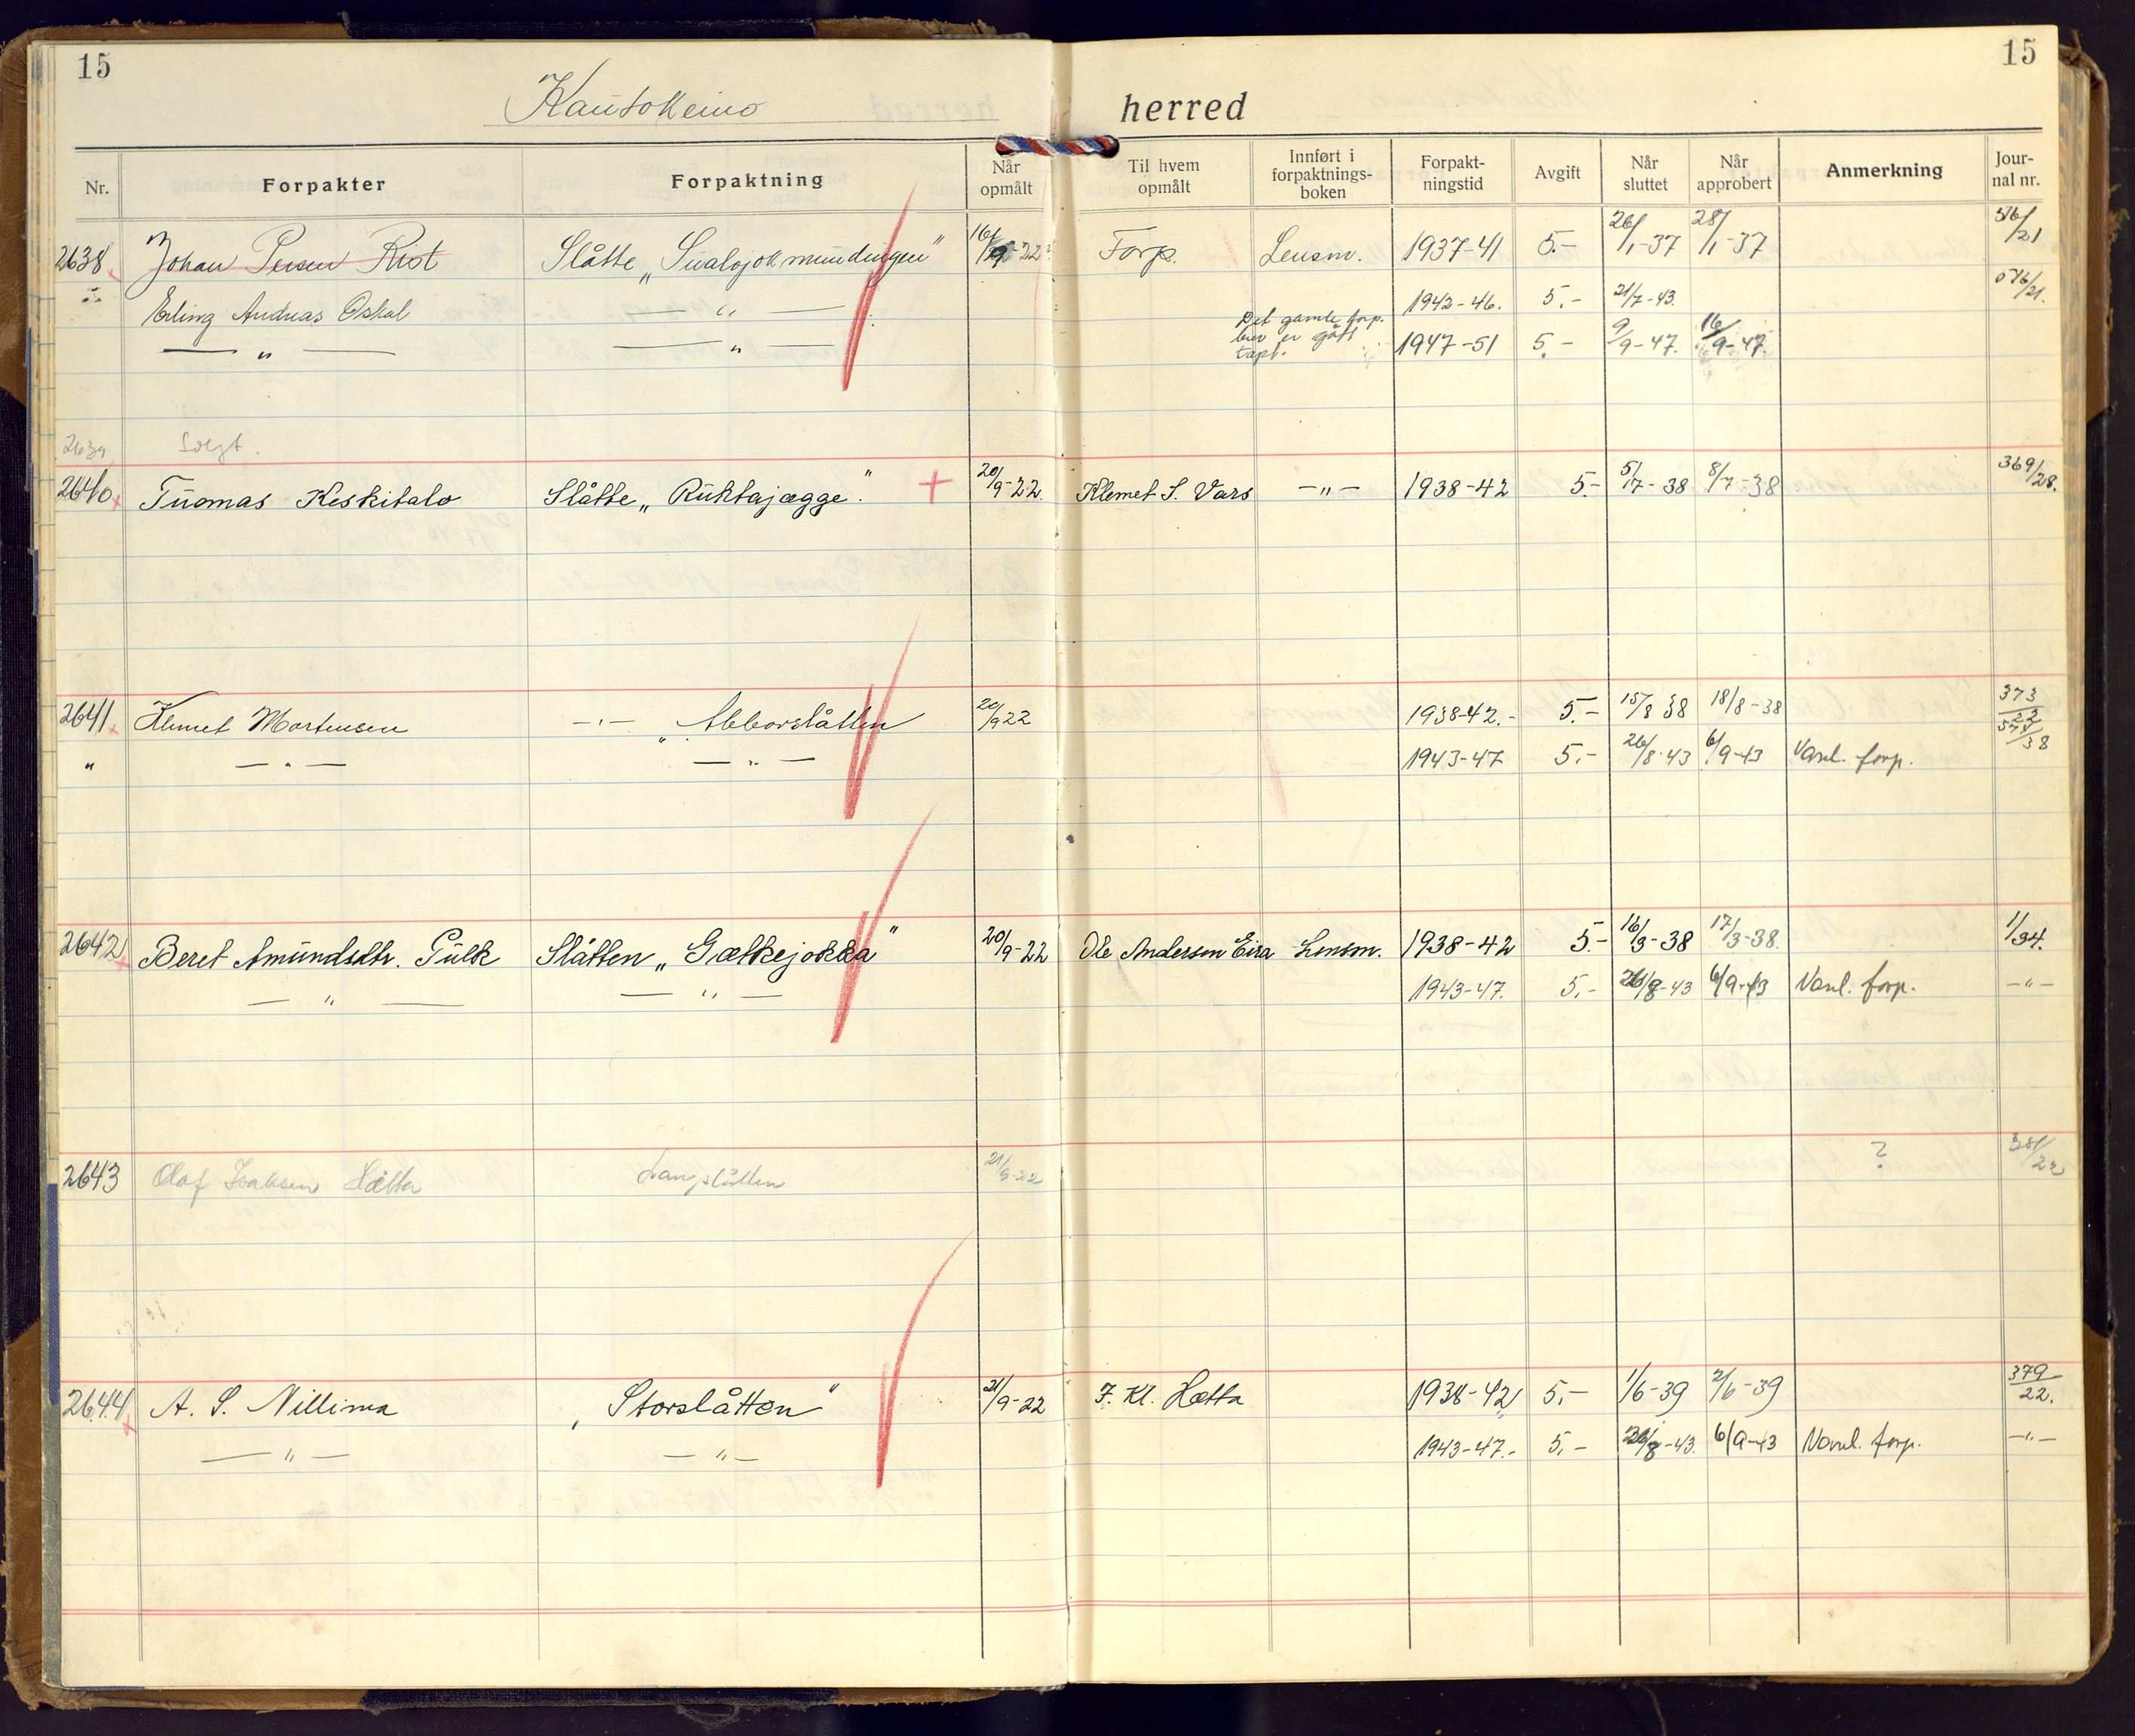 15
15
Kautokeino herred
Nr. Forpakter Forpaktning Når opmålt Til hvem opmålt Innført i forpaktnings-boken Forpakt-ningstid Avgift Når sluttet Når approbert Anmerkning Jour-nal nr.
2638 Johan Persen Rist Slåtte „Sualojokmundingen" 16/9-22 Forp. Lensm. 1937-41 5.- 26/1-37 28/1-37 576/21
Erling Andreas Oskal —"— 1942-46. 5.- 21/7-43. 576/21.
Det gamle forp. brev er gått tapt.
—"— —"— 1947-51 5.- 9/9-47. 16/9-47.
2639 Solgt.
2640 Tuomas Keskitalo Slåtte „Ruktajægge". + 20/9-22. Klemet S. Vars —"— 1938-42 5.- 5/7-38 8/7-38 369/28.
2641 Klemet Mortensen —"— „Abborslåtten 20/9 22 1938-42.- 5.- 15/8 38 18/8-38 373/22
" —"— —"— 1943-47 5.- 26/8-43 6/9-43 Vanl. forp. /38
2642 Beret Amundsdtr. Pulk Slåtten „Gætkejokka" 20/9-22 Ole Andersen Eira Lensm. 1938-42 5.- 16/3-38 17/3-38. 1/34.
—"— —"— 1943-47. 5.- 26/8-43 6/9-43 Vanl. forp. —"—
2643 Olaf Isaksen Hætta Langslåtten 21/9-22 ? 381/22
2644 A. S. Nillima „Storslåtten" 21/9-22 F. Kl. Hætta 1938-42 5.- 1/6-39 2/6-39 379/22.
—"— —"— 1943-47.- 5.- 26/8-43. 6/9-43 Vanl. forp. —"—